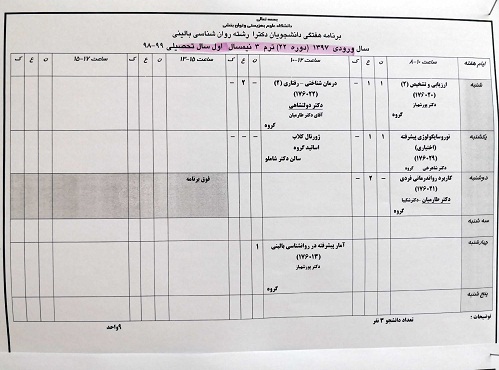 بسمه تعالی
دانشگاه علوم بهزیستی و توان بخشی
برنامه هفتگی دانشجویان دکترا رشته روان شناسی بالینی
سال ورودی ۱۳۹۷ (دوره ۲۲) ترم ۳ نیمسال اول سال تحصیلی ۹۹-۹۸
ایام هفته ساعت ۱۰-۸ ن ع ک ساعت ۱۲-۱۰ ن ع ک ساعت ۱۵-۱۳ ن ع ک ساعت ۱۷-۱۵ ن ع ک
شنبه
ارزیابی و تشخیص (۲)
(۱۷۶۰۲۰)
دکتر پورشهباز
گروه
۱ ۱ -
درمان شناختی - رفتاری (۴)
(۱۷۶۰۲۲)
دکتر دولتشاهی
آقای دکتر طارمیان
گروه
- ۲ -
یکشنبه
نوروسایکولوژی پیشرفته
(اختیاری)
(۱۷۶۰۲۹)
دکتر شاهرخی گروه
۱ ۱ -
ژورنال کلاب
اساتید گروه
سالن دکتر شاملو
- - -
دوشنبه
کاربرد رواندرمانی فردی
(۱۷۶۰۲۱)
دکتر طارمیان - دکتر تکیا
گروه
- ۲ -
فوق برنامه
سه شنبه
چهارشنبه
آمار پیشرفته در روانشناسی بالینی
(۱۷۶۰۱۳)
دکتر پورشهباز
گروه
۱
پنج شنبه
توضیحات : تعداد دانشجو ۳ نفر ۹واحد